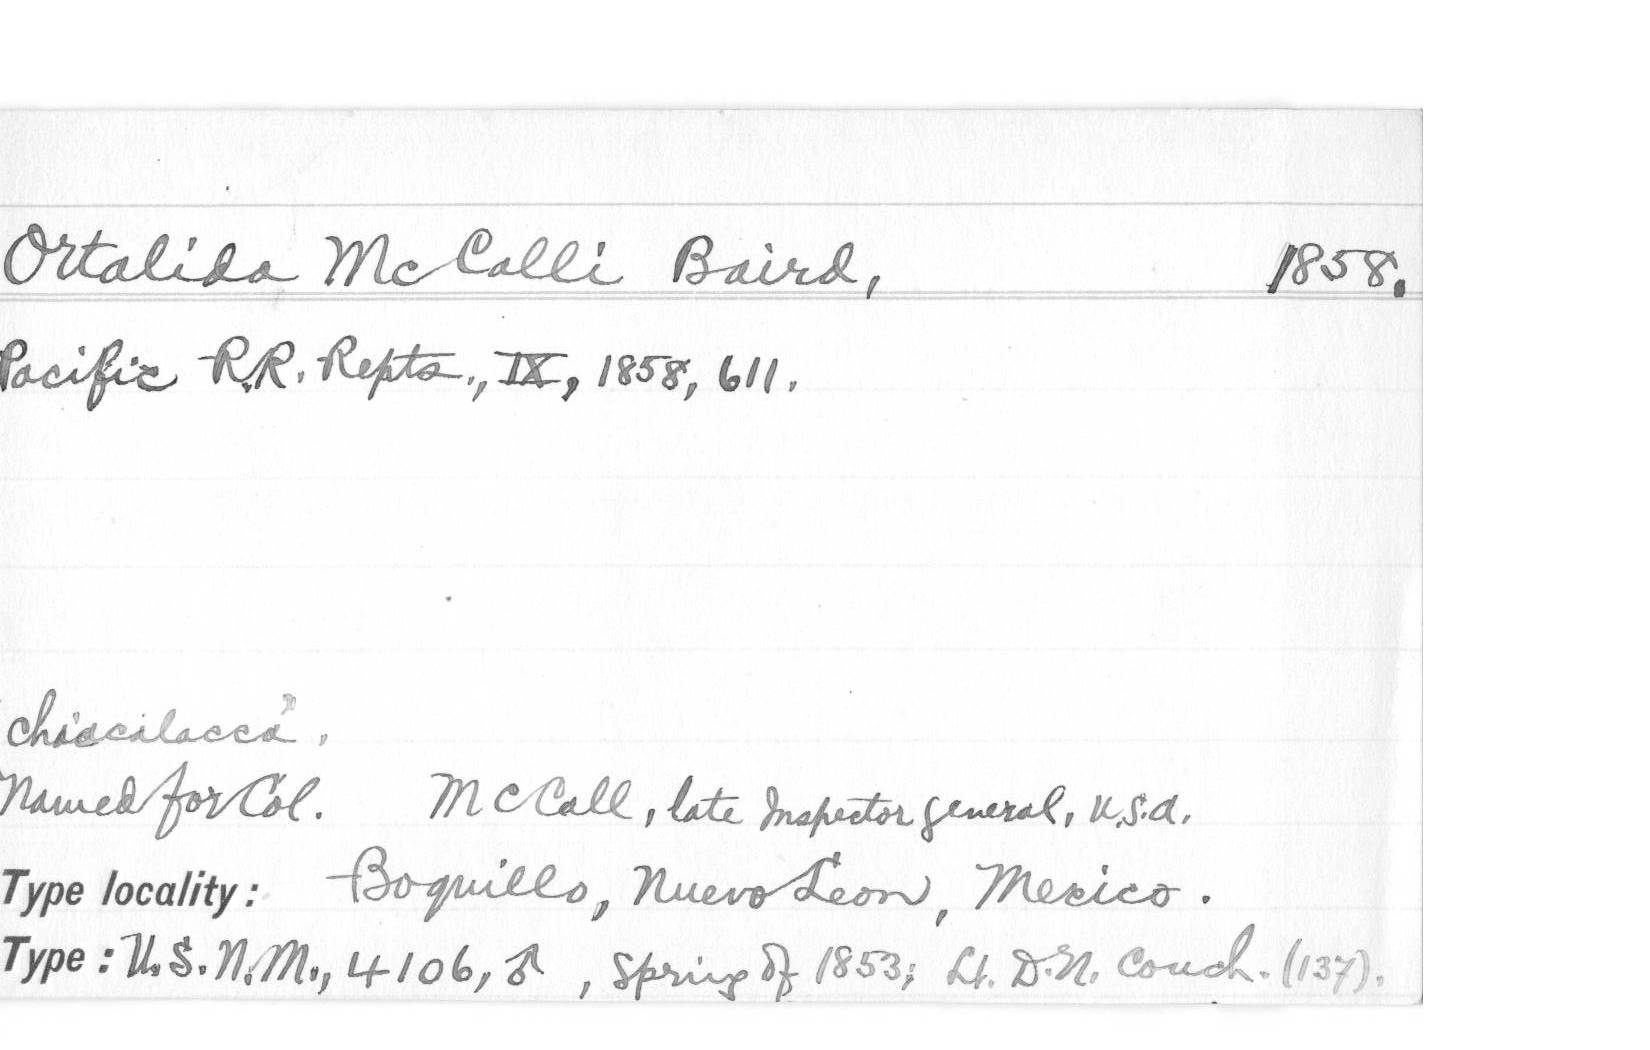 Ortalida McCalli Baird, 1858.
Pacific R.R. Repts., IX, 1858, 611.
"chiacalacca".
Named for Col. McCall, late Inspector General, U.S.A.
Type locality: Boquillo, Nuevo Leon, Mexico.
Type: U.S.N.M., 4106, ♂, Spring of 1853; Lt. D.N. Couch. (137).